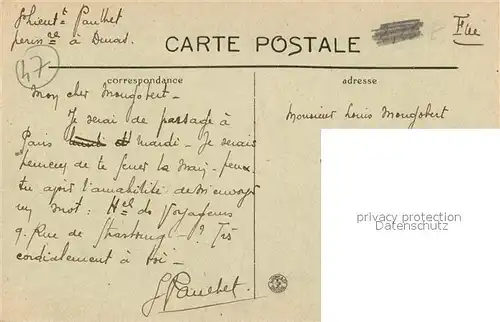 Paulhet
à Dinas.
47
CARTE POSTALE
correspondance
adresse
Mon cher Mongobert -
Je serai de passage à
Paris lundi et mardi - Je serais
heureux de te serrer la main - peux
tu avoir l'amabilité de m'envoyer
un mot : Hel des Voyageurs
9. Rue de Strasbourg - ? Très
cordialement à toi -
Monsieur Louis Mongobert
privacy protection
Datenschutz